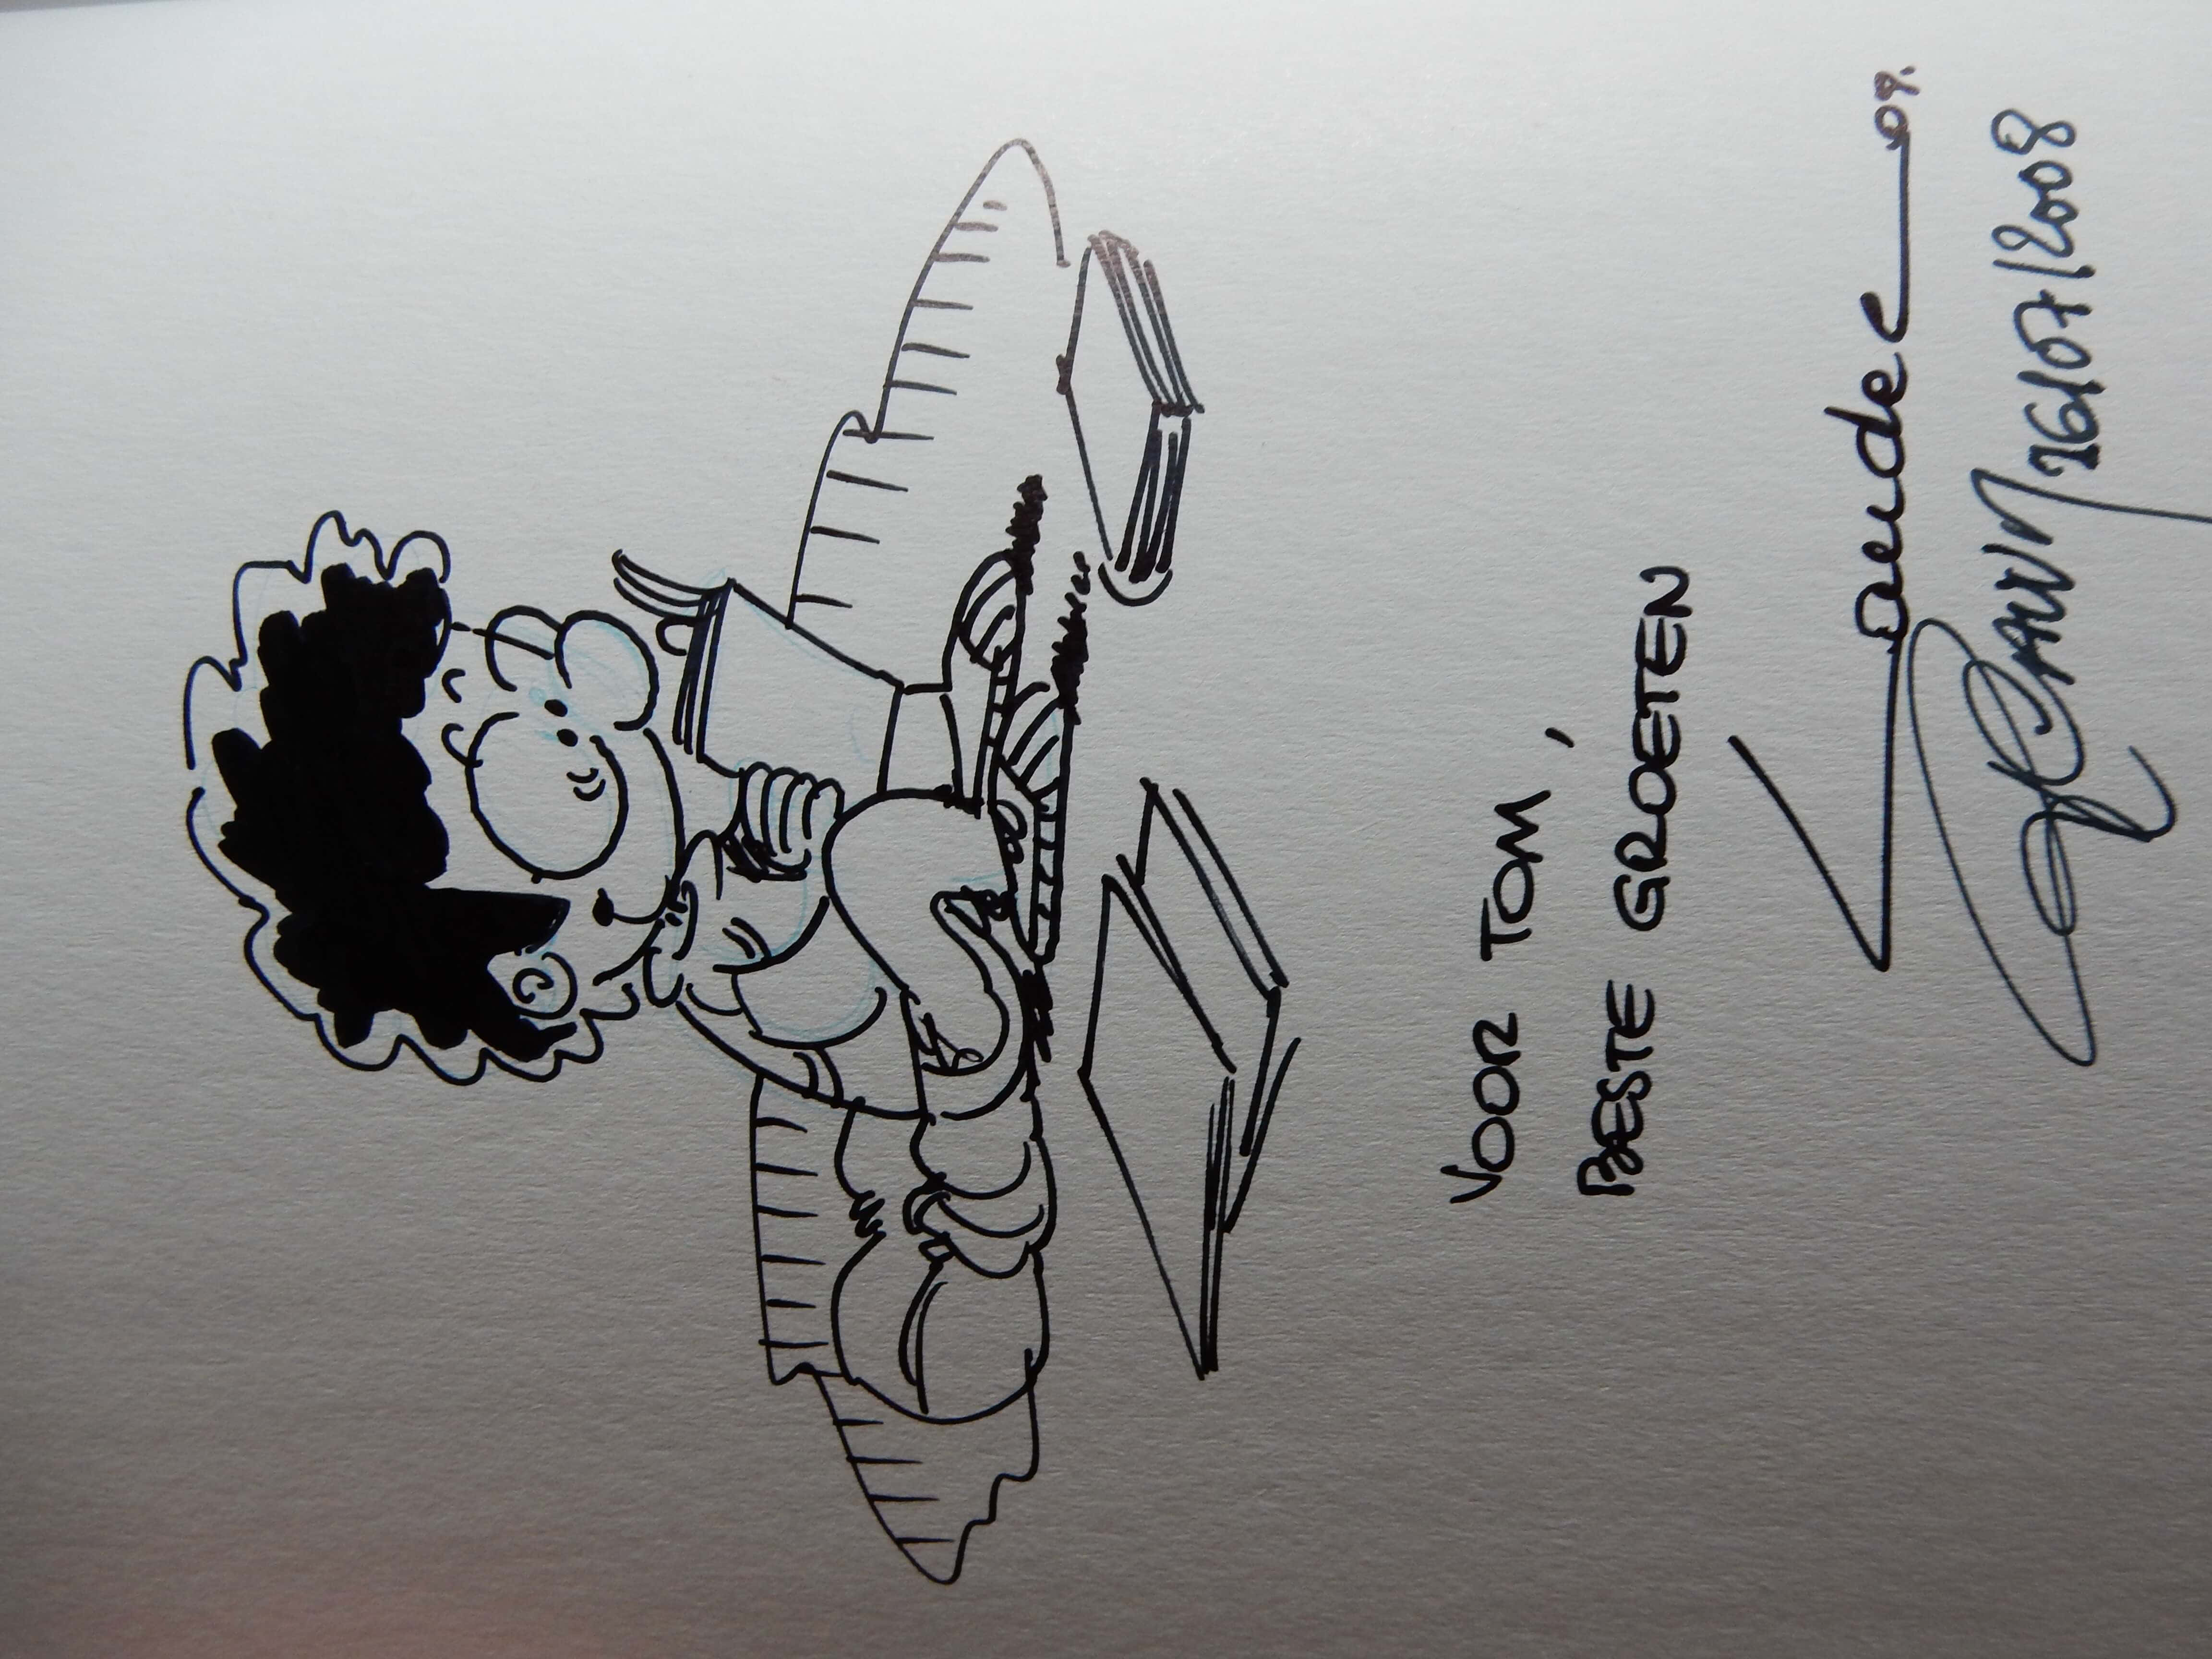 VOOR TOM,
BESTE GROETEN
Laudec 08.
R.CAUVIN 26/07/2008